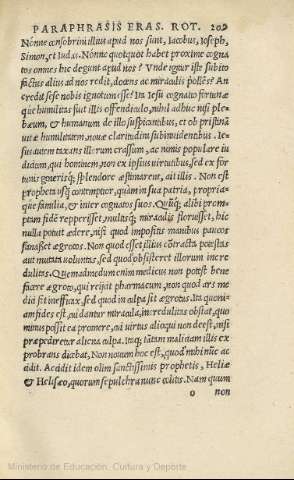 PARAPHRASIS ERAS. ROT. 209
Nónne consobrini illius apud nos sunt, Iacobus, Ioseph,
Simon, et Iudas? Nonne quotquot habet proxime cogna
tos omnes hic degunt apud nos? Vnde igitur iste subito
factus alius ad nos redit, doctus ac miraculis pollẽs? An
credit sese nobis ignotum esse? Ita Iesu cognato fortunæ
que humilitas fuit illis offendiculo, nihil adhuc nisi ple-
beium, & humanum de illo suspicantibus, et ob pristinã
vitæ humilitatem, nouæ claritudini subinuidentibus. Ie-
sus autem taxans illorum crassum, ac nimis populare iu
dicium, qui hominem, non ex ipsius virtutibus, sed ex for-
tunis generisq; splendore æstimarent, ait illis. Non est
propheta usq̃ contemptior, quàm in sua patria, propria-
que familia, & inter cognatos suos. Quũq; alibi prom-
ptam fidẽ repperisset, multisq; miraculis floruisset, hic
nulla potuit ædere, nisi quod impositis manibus paucos
sanasset ægrotos. Non quod esset illius cõtracta potestas
aut mutata voluntas, sed quod obsisteret illorum incre
dulitas. Quemadmodum enim medicus non potest bene
facere ægroto, qui reijcit pharmacum, non quod ars me
dici sit inefficax, sed quod in culpa sit ægrotus. Ita quoni-
am fides est, cui dantur miracula, incredulitas obstat, quo
minus possit ea promere, ni virtus alioqui non deest, nisi
præpediretur aliena culpa. Itaq; tãtam malitiam illis ex
probrans dicebat, Non nouum hoc est, quod mihi nũc ac
cidit. Accidit idem olim sanctissimis prophetis, Heliæ
& Helisæo, quorum sepulchra nunc colitis. Nam quum
o non
Ministerio de Educación, Cultura y Deporte